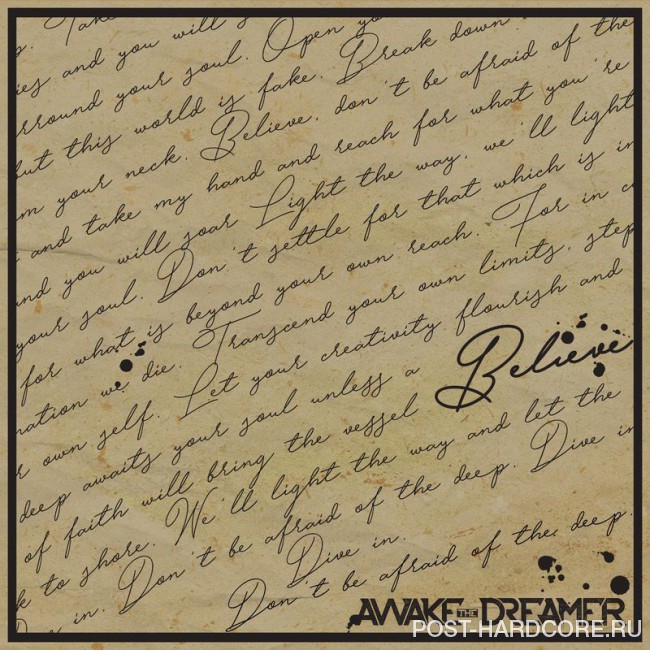 . Take
ies and you will
rround your soul. Open yo
but this world is fake. Break down
m your neck. Believe, don't be afraid of the
and take my hand and reach for what you're
and you will soar Light the way, we'll light
your soul. Don't settle for that which is in
for what is beyond your own reach. For in c
nation we die. Transcend your own limits, step
r own self. Let your creativity flourish and
deep awaits your soul unless a
Believe
of faith will bring the vessel
k to shore. We'll light the way and let the
e in. Don't be afraid of the deep. Dive in
Dive in.
Don't be afraid of the deep.
AWAKE THE DREAMER
POST-HARDCORE.RU